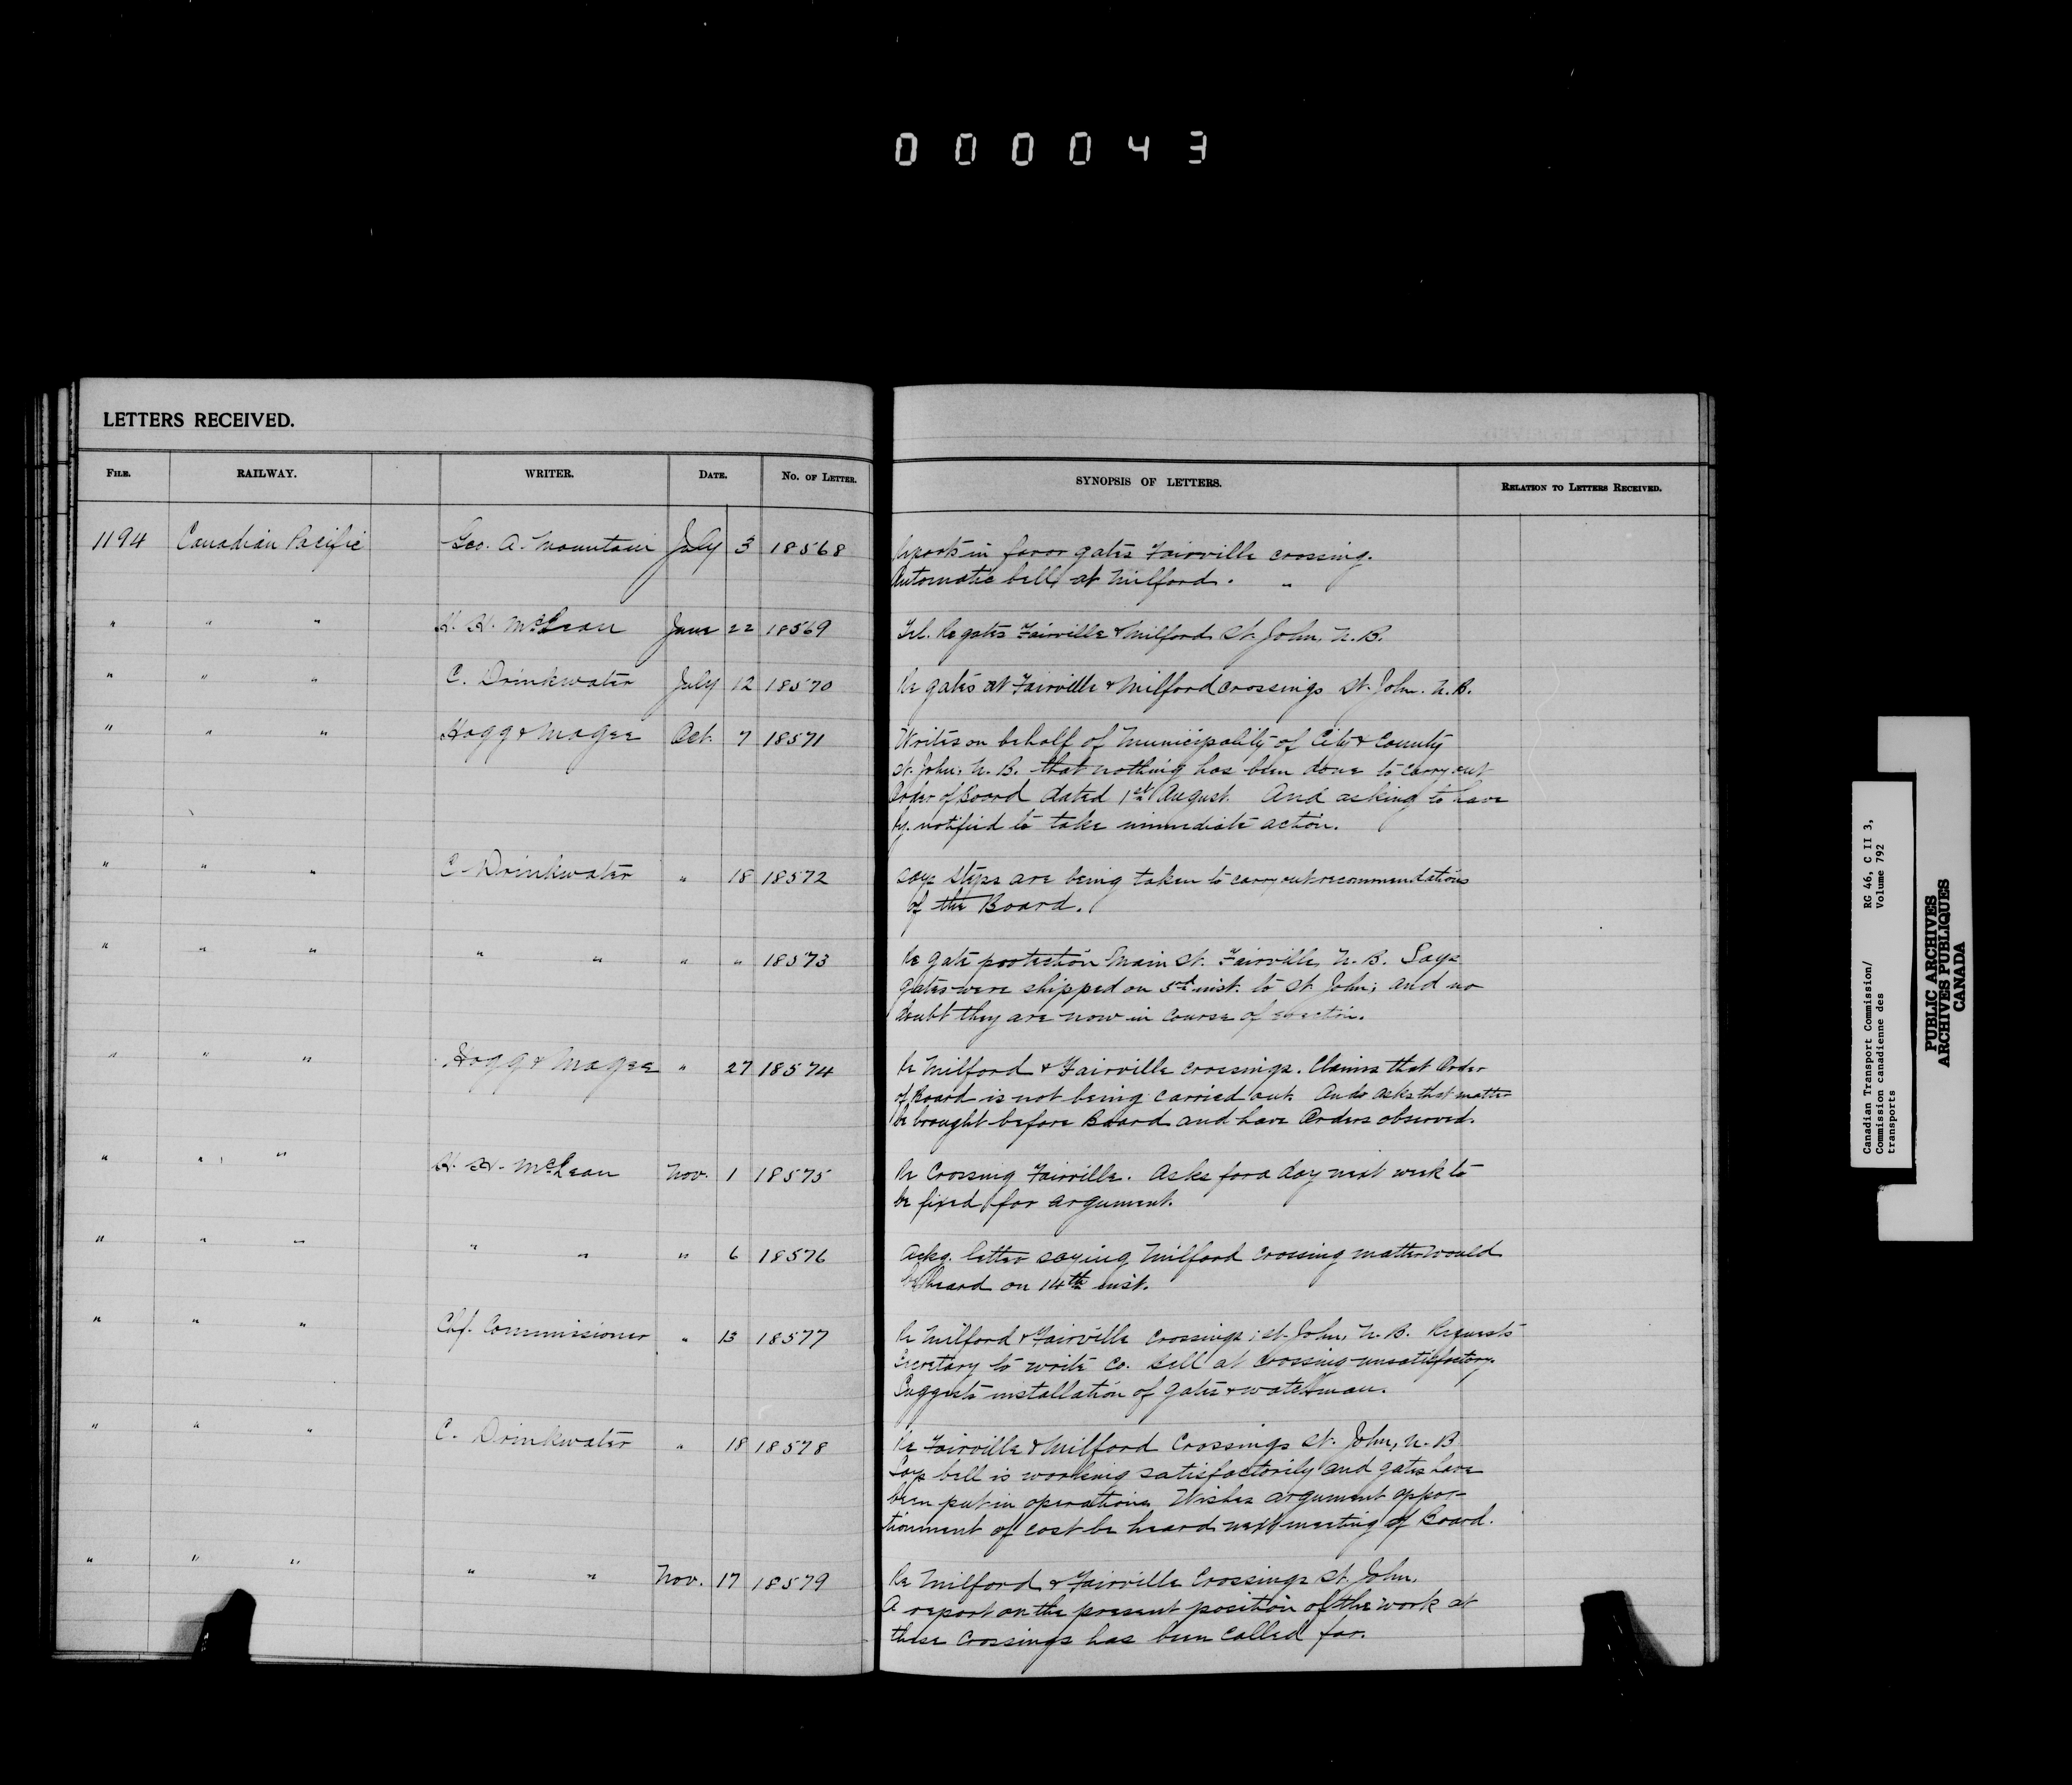 000043
LETTERS RECEIVED.
FILE. RAILWAY. WRITER. DATE. NO. OF LETTER. SYNOPSIS OF LETTERS. RELATION TO LETTERS RECEIVED.
1194 Canadian Pacific Geo. A. Mountain July 3 18568 Reports in favor gates Fairville crossing.
Automatic bell at Milford. "
" " " H. H. McLean June 22 18569 Tel. Re gates Fairville & Milford St. John, N.B.
" " " C. Drinkwater July 12 18570 Re gates at Fairville & Milford crossings St. John. N.B.
" " " Hogg & Magee Oct. 7 18571 Writes on behalf of Municipality of City & County
St. John, N.B. that nothing has been done to carry out
Order of Board dated 1st August. And asking to have
Ry. notified to take immediate action.
" " " C. Drinkwater " 18 18572 Says steps are being taken to carry out recommendations
of the Board.
" " " " " " " 18573 Re gate protection Main St. Fairville, N.B. Says
gates were shipped on 5th inst. to St. John; and no
doubt they are now in course of erection.
" " " Hogg & Magee " 27 18574 Re Milford & Fairville crossings. Claims that Order
of Board is not being carried out. And asks that matter
be brought before Board and have Orders observed.
" " " H. H. McLean Nov. 1 18575 Re Crossing Fairville. Asks for a day next week to
be fixed for argument.
" " " " " " 6 18576 Ackg. letter saying Milford crossing matter would
be heard on 14th inst.
" " " Chf. Commissioner " 13 18577 Re Milford & Fairville crossings; St. John, N.B. Requests
Secretary to write Co. Bell at crossing unsatisfactory.
Suggests installation of gates & watchman.
" " " C. Drinkwater " 18 18578 Re Fairville & Milford Crossings St. John, N.B
Says bell is working satisfactorily and gates have
been put in operation. Wishes argument appor-
tionment of cost be heard next meeting of Board.
" " " " " Nov. 17 18579 Re Milford & Fairville Crossings St. John.
A report on the present position of the work at
these crossings has been called for.
Canadian Transport Commission/ RG 46, C II 3,
Commission canadienne des Volume 792
transports
PUBLIC ARCHIVES
ARCHIVES PUBLIQUES
CANADA